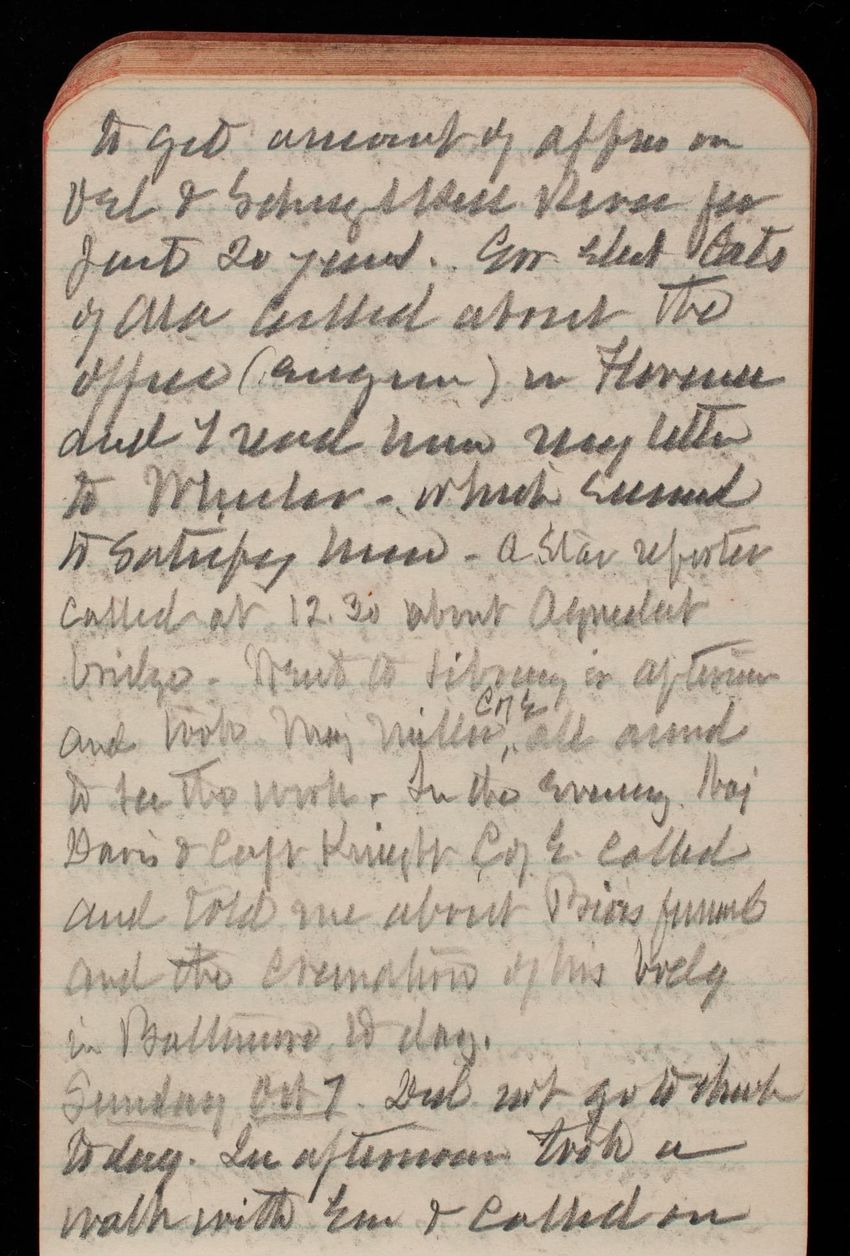 to get amount of appro on
Del & Schuylkill River for
past 20 years. Gov Elect Oats
of Ala called about the
office (engrs) in Florence
and I read him my letter
to Wheeler - which seemed
to satisfy him - A Star reporter
called at 12.30 about Aqueduct
bridge. Went to Library in afternoon
and took Maj Miller, C of E all around
to see the work. In the evening Maj
Davis & Capt Knight C of E. called
and told me about funeral
and the cremation of his body
in Baltimore to day.
Sunday Oct 7. Did not go to church
to day. In afternoon took a
walk with Em & called on